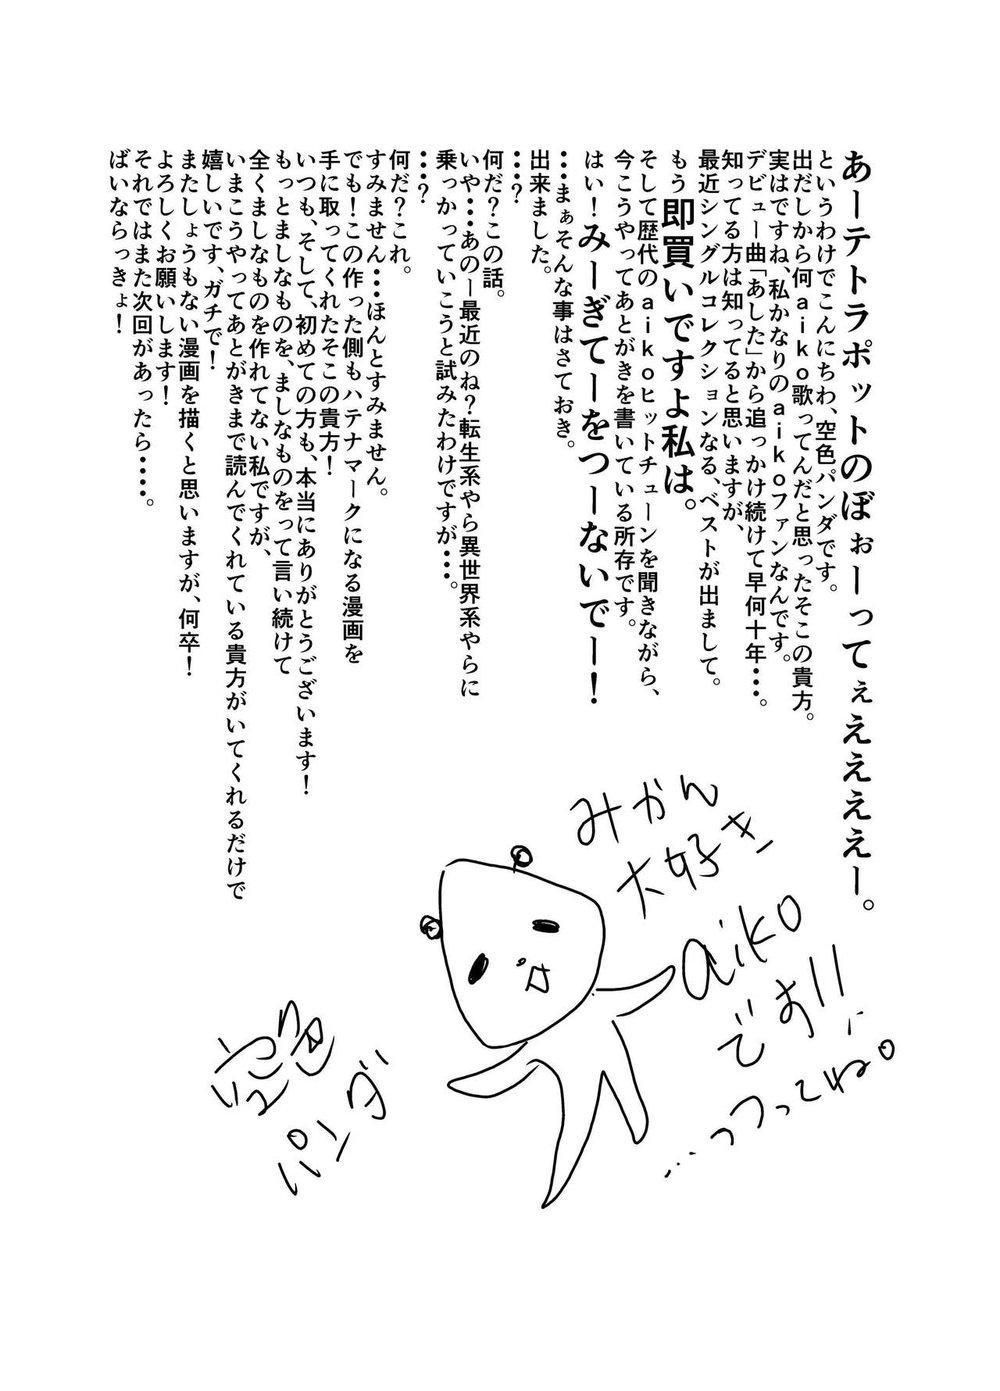 あーテトラポットのぼぉーってぇええええー。
というわけでこんにちわ、空色パンダです。
出だしから何aiko歌ってんだと思ったそこの貴方。
実はですね、私かなりのaikoファンなんです。
デビュー曲「あした」から追っかけ続けて早何十年・・・。
知ってる方は知ってると思いますが、
最近シングルコレクションなる、ベストが出まして。
もう即買いですよ私は。
そして歴代のaikoヒットチューンを聞きながら、
今こうやってあとがきを書いている所存です。
はい！みーぎてーをつーないでー！
・・・まぁそんな事はさておき。
出来ました。
・・・？
何だ？この話。
いや・・・あのー最近のね？転生系やら異世界系やらに
乗っかっていこうと試みたわけですが・・・。
・・・？
何だ？これ。
すみません・・・ほんとすみません。
でも！この作った側もハテナマークになる漫画を
手に取ってくれたそこの貴方！
いつも、そして、初めての方も、本当にありがとうございます！
もっとましなものを、ましなものをって言い続けて
全くましなものを作れてない私ですが、
いまこうやってあとがきまで読んでくれている貴方がいてくれるだけで
嬉しいです、ガチで！
またしょうもない漫画を描くと思いますが、何卒！
よろしくお願いします！
それではまた次回があったら・・・・。
ばいならっきょ！
みかん
大好き
aiko
です!!
…っつってね。
空色
パンダ